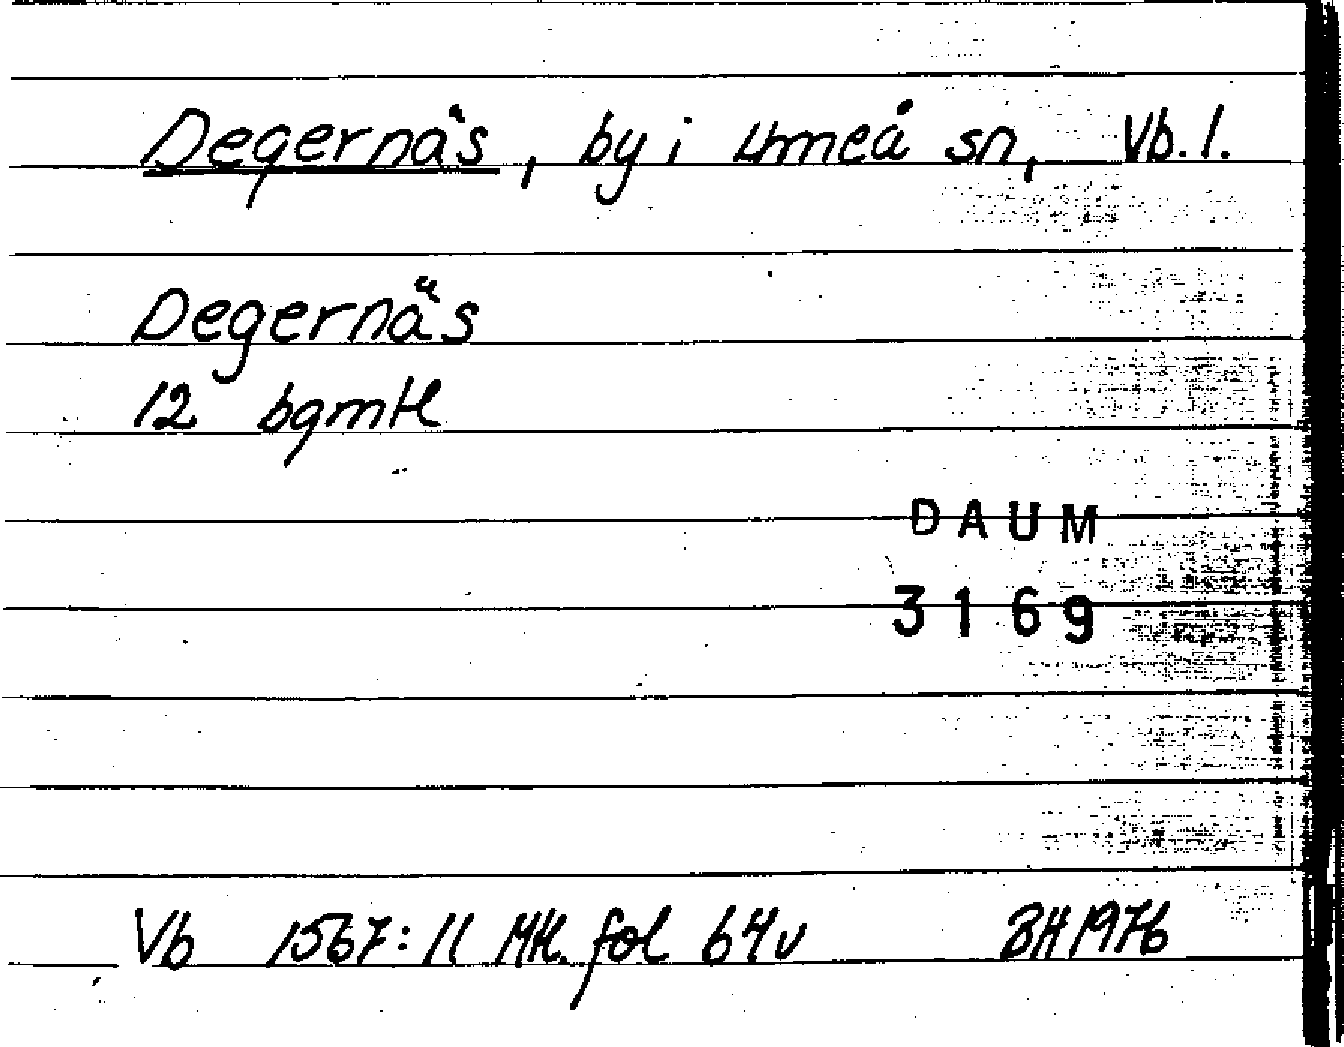 Degernäs, by i Umeå sn, Vb. l.
Degernäs
12 bgmtl
DAUM
3169
Vb 1567:11 Mtl. fol 64v BH 1976